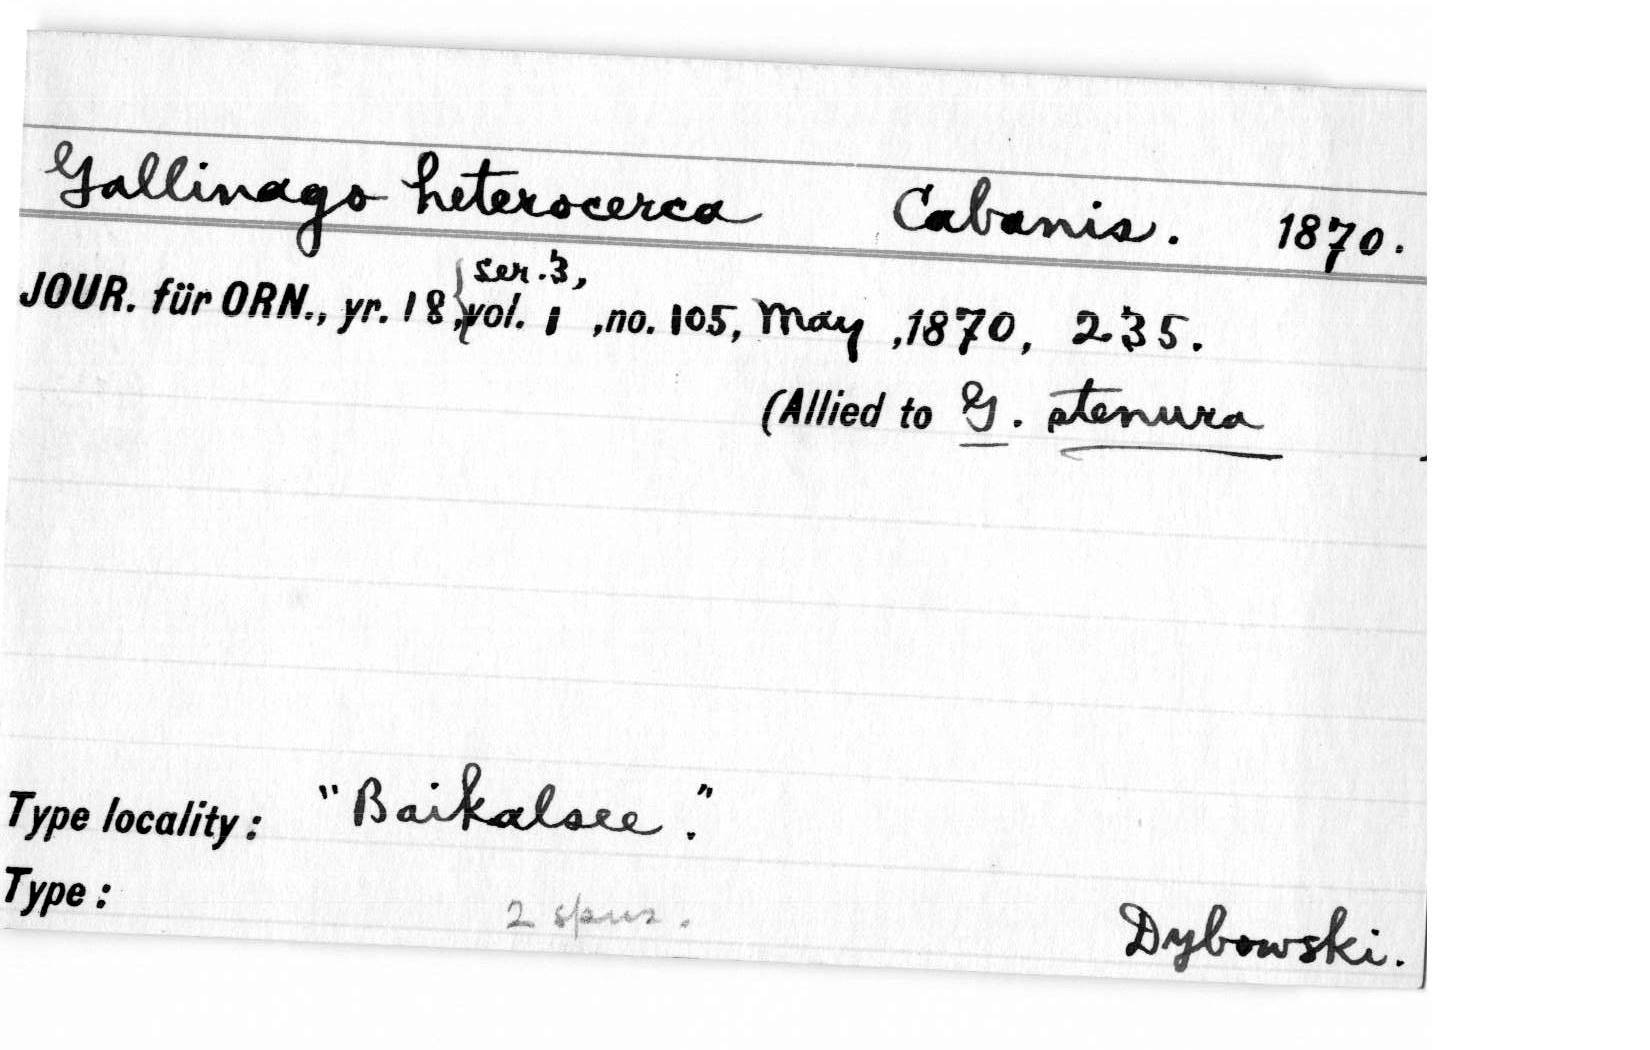 Gallinago heterocerca Cabanis. 1870.
ser. 3,
JOUR. für ORN., yr. 18, vol. 1 ,no. 105, May ,1870, 235.
(Allied to G. stenura
Type locality: "Baikalsee."
Type:
2 spms.
Dybowski.